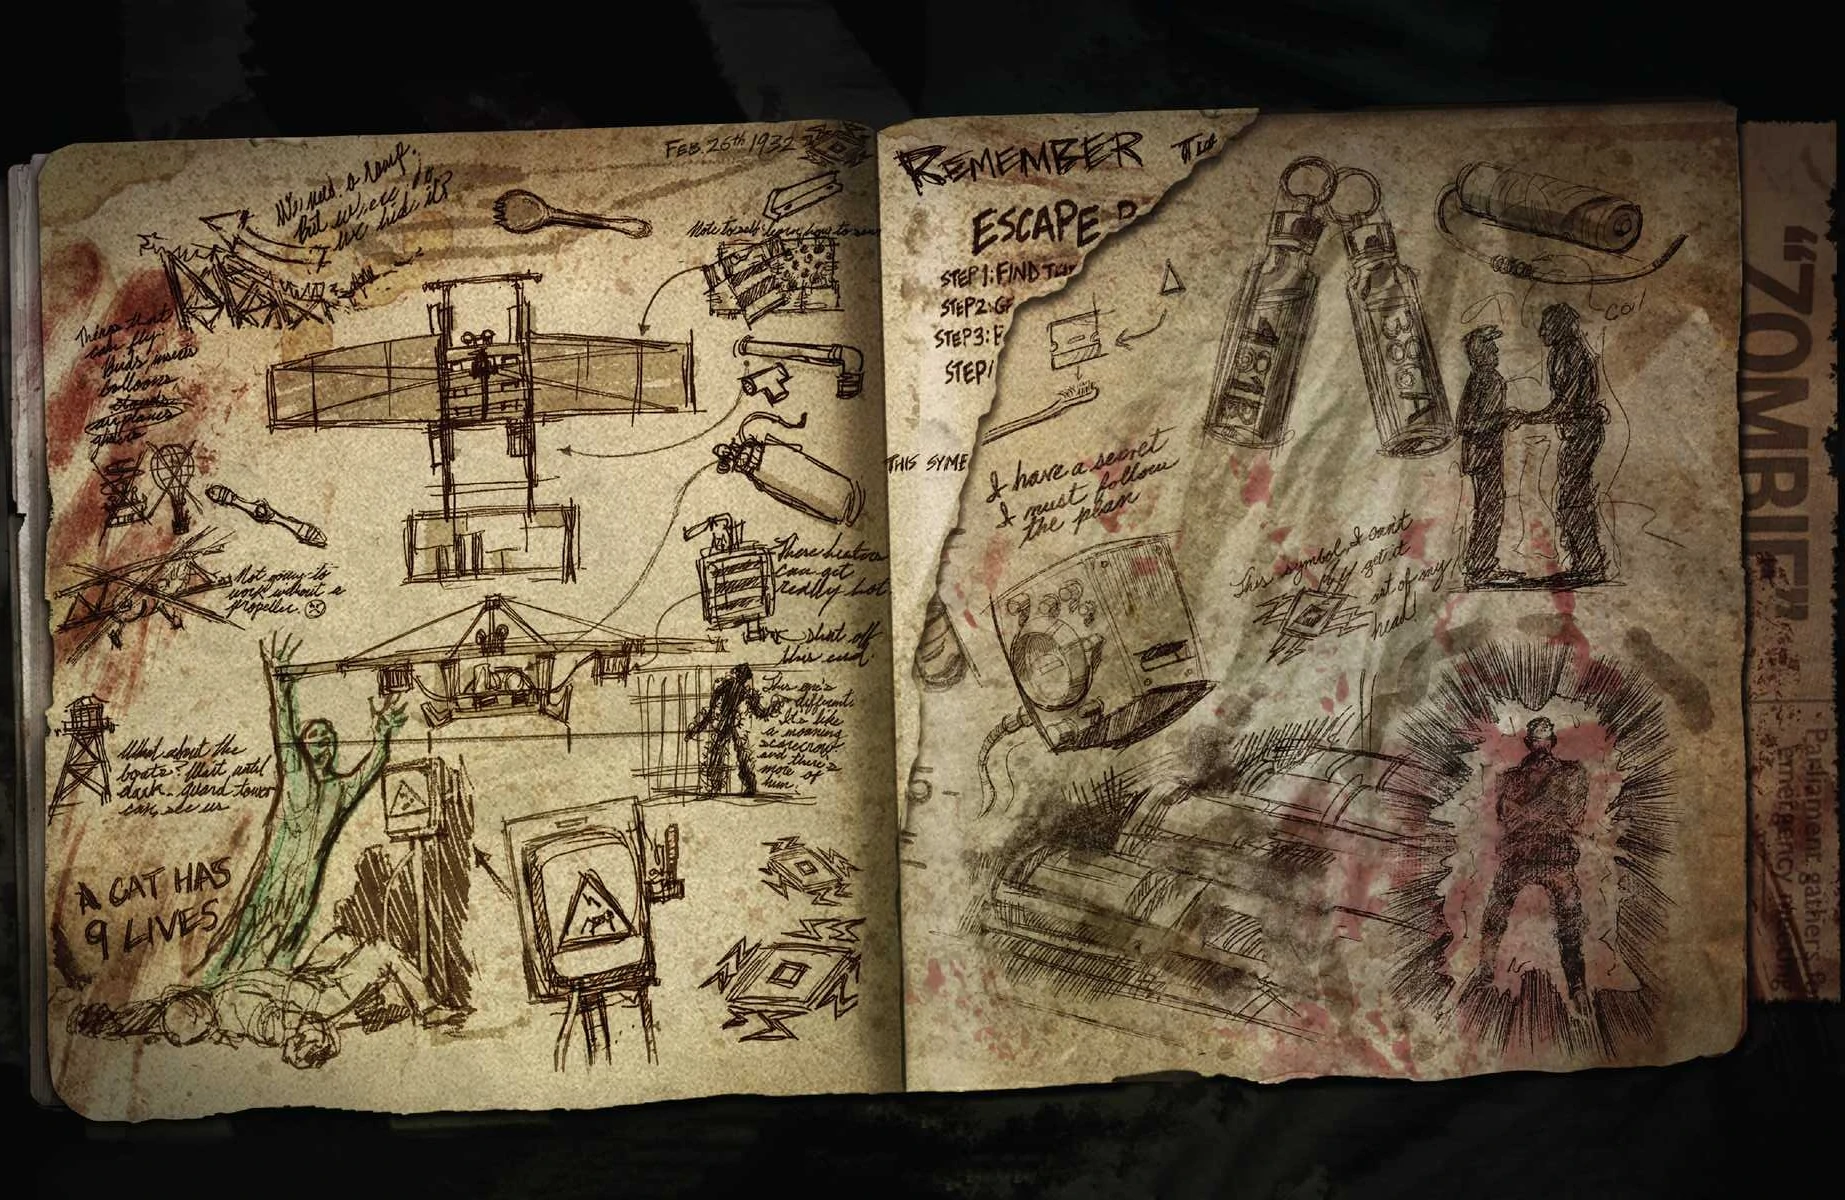 Feb. 26th 1932
We need a ramp.
but where do
we hide it?
Note to self: learn how to sew
Things that
can fly:
birds insects
balloons
airplanes
Not going to
work without a
propeller.
These heaters
can get
really hot
shut off
this end.
This one's
different.
It's like
a moaning
scarecrow
and there's
more of
him.
What about the
boats? Wait until
dark - guard tower
can see us
A CAT HAS
9 LIVES
REMEMBER
ESCAPE
STEP 1: FIND
STEP 2:
STEP 3:
STEP
THIS SYM
I have a secret
I must follow
the plan
481E
386A
This symbol, I can't
get it
out of my
head!
"ZOMBIE"
Parliament gathers
emergency